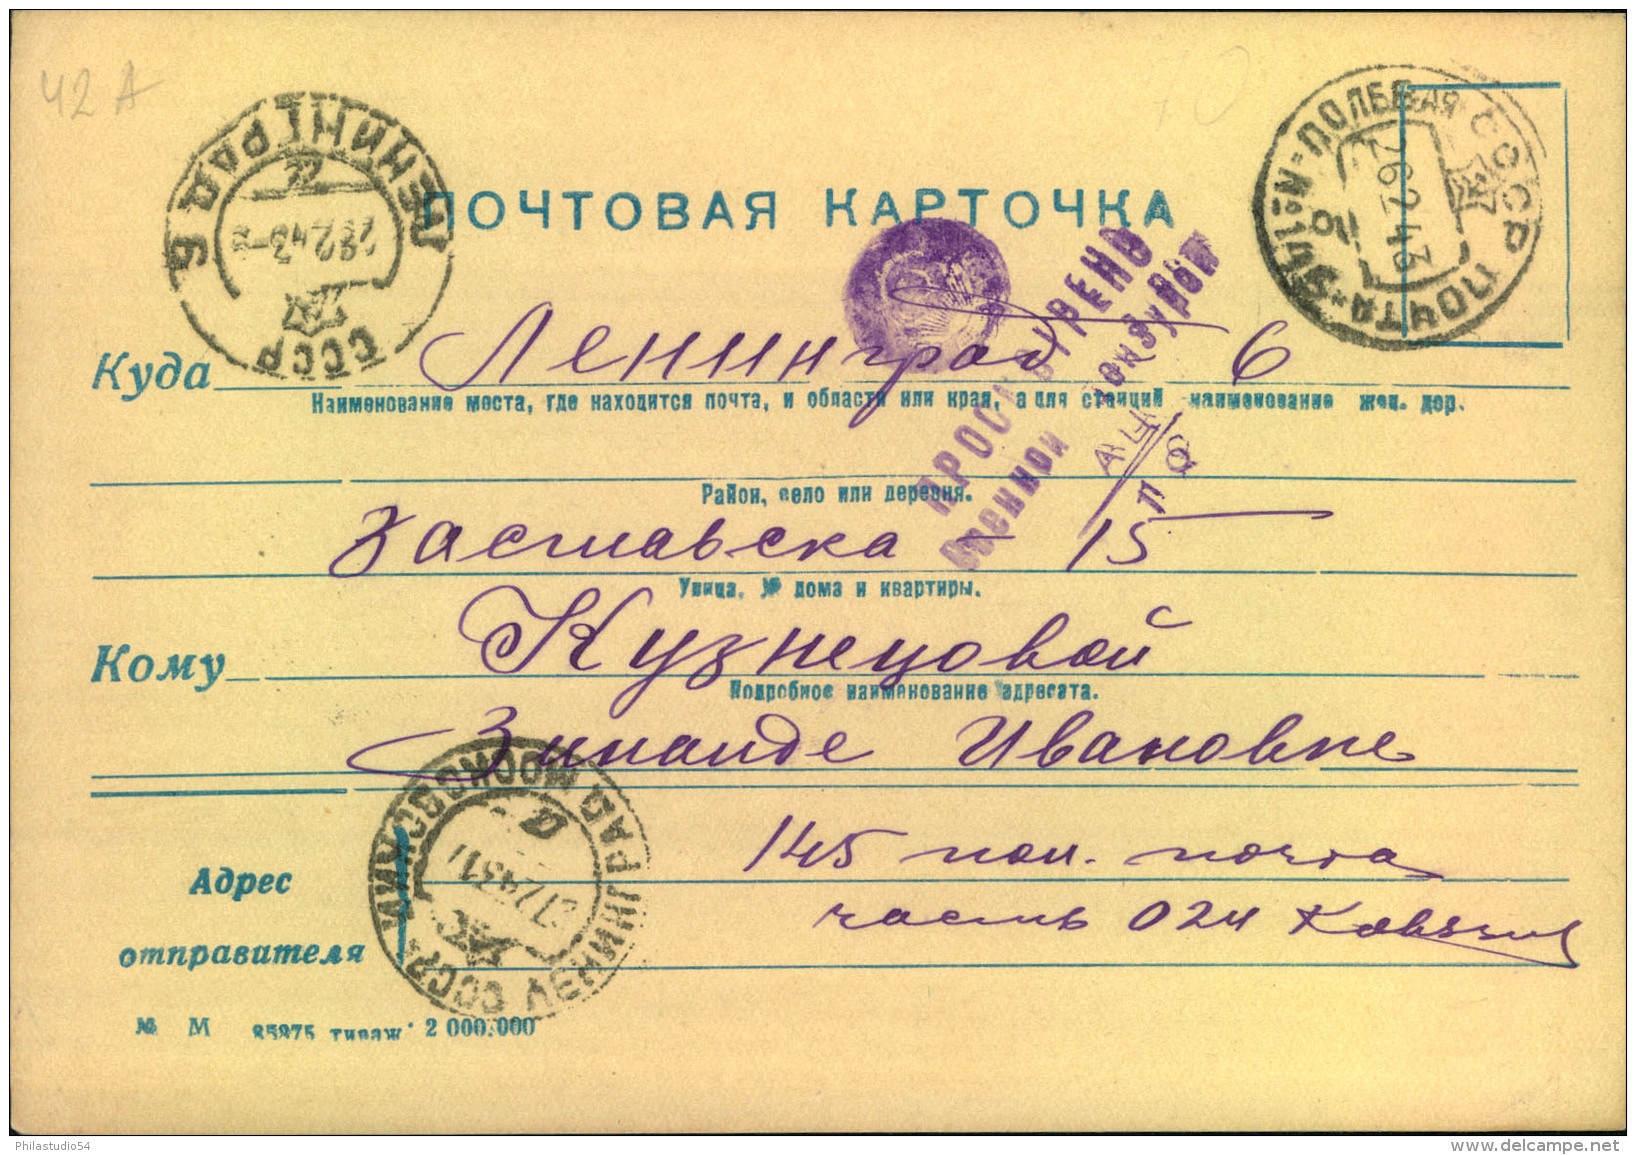 42 А
ЛЕНИНГРАД 6
28 2 43
СССР
ПОЛЕВАЯ
СССР ПОЧТА
26 2 43
ПОЧТОВАЯ КАРТОЧКА
ПРОСМОТРЕНО
Военной Цензурой
Куда Ленинград 6
Наименование места, где находится почта, и области или края, а для станций наименование жел. дор.
Район, село или деревня.
Заславска – 15
Улица, № дома и квартиры.
Кому Кузнецовой
Подробное наименование адресата.
Зинаиде Ивановне
ЛЕНИНГРАД МОСКОВСКИЙ
СССР
Адрес
отправителя
145 пол. почта
часть 024
№ М 85875 тираж 2 000.000
Philastudio54
www.delcampe.net